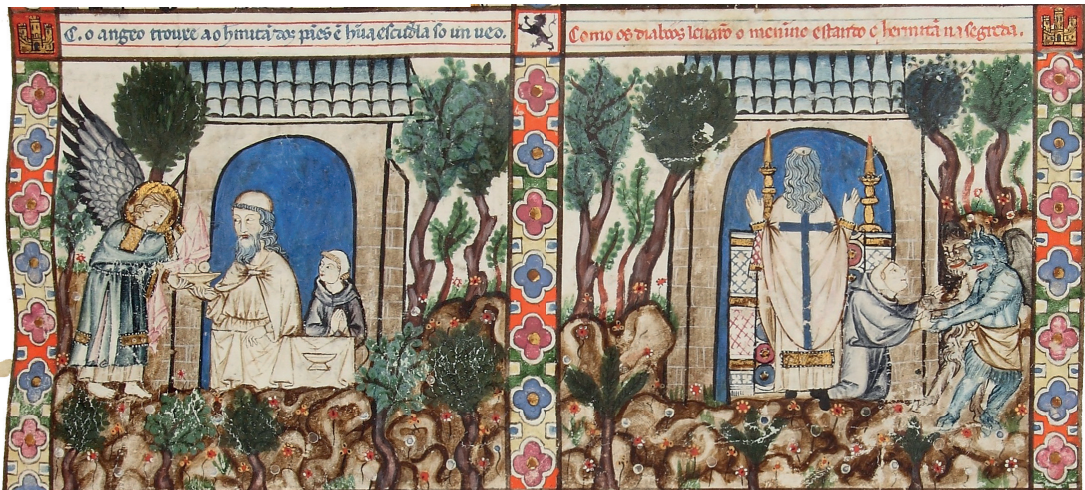 C. o angeo trouxe ao hermitã dos pães ẽ hũa escudela so un ueo.
Como os diabos leuarõ o menino estando o hermitã na segreda.